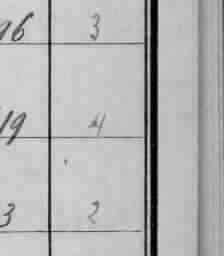 96 3
19 4
3 2